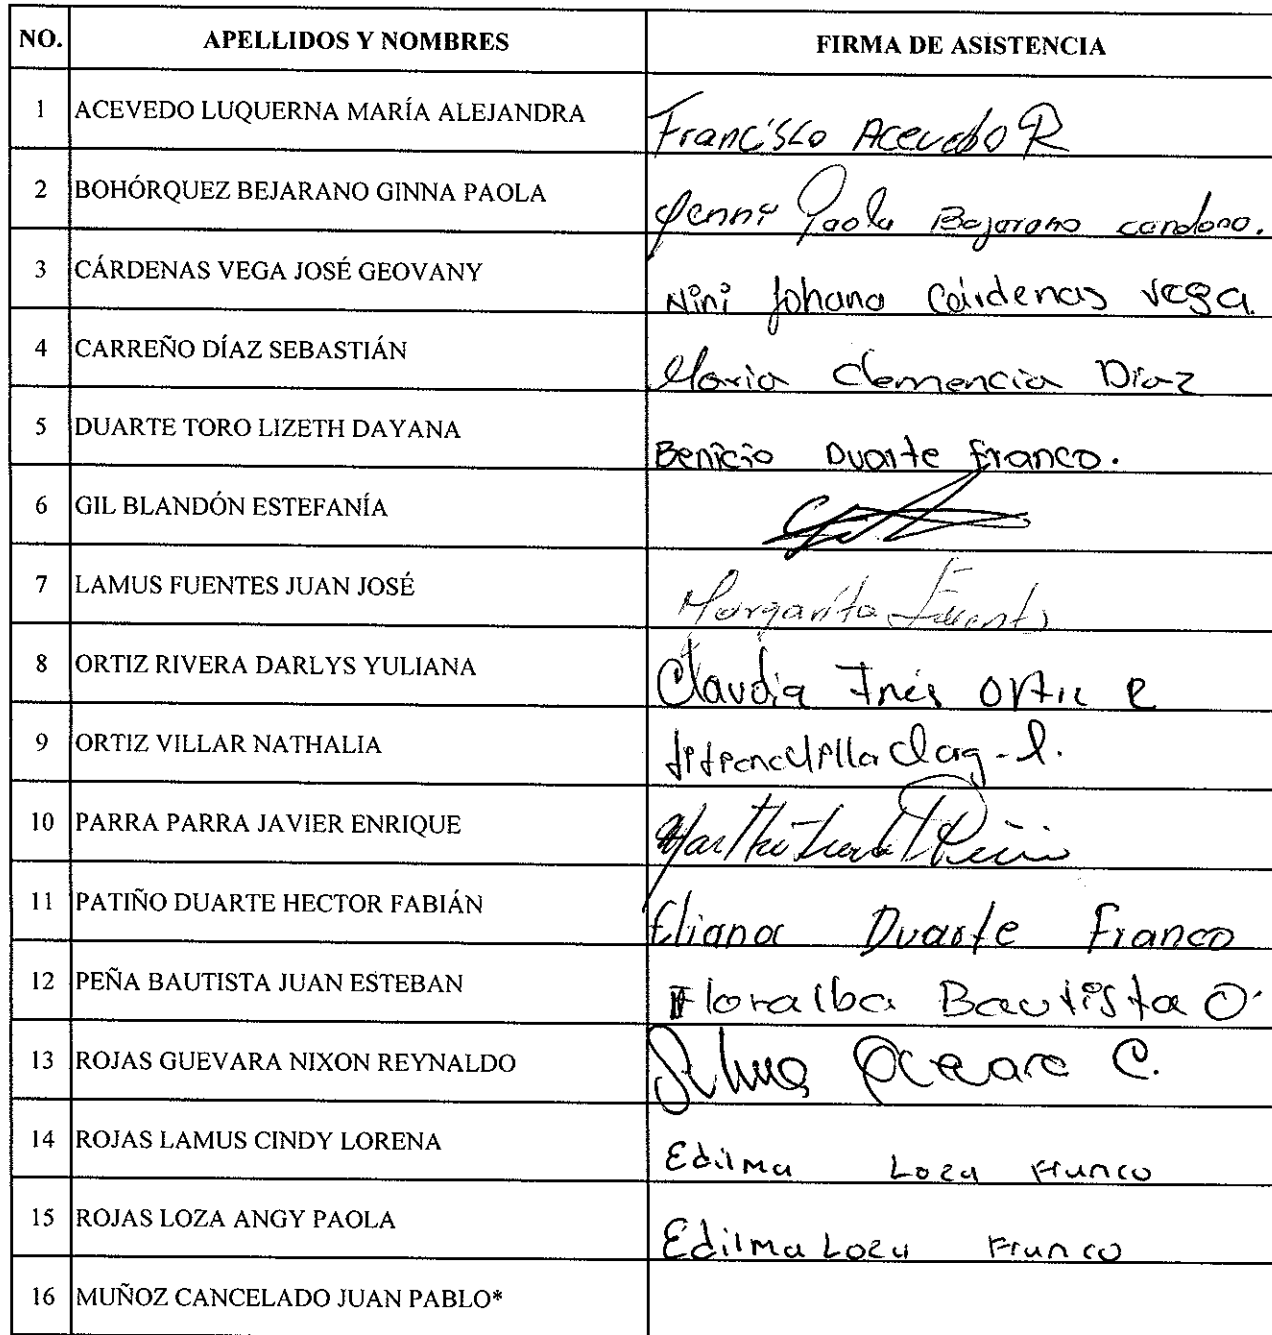 NO. APELLIDOS Y NOMBRES FIRMA DE ASISTENCIA
1 ACEVEDO LUQUERNA MARÍA ALEJANDRA Francisco Acevedo R
2 BOHÓRQUEZ BEJARANO GINNA PAOLA Paola Bejarano
3 CÁRDENAS VEGA JOSÉ GEOVANY Nini Johana Cárdenas Vega
4 CARREÑO DÍAZ SEBASTIÁN Maria Clemencia Diaz
5 DUARTE TORO LIZETH DAYANA Benicio Duarte Franco.
6 GIL BLANDÓN ESTEFANÍA
7 LAMUS FUENTES JUAN JOSÉ Margarita
8 ORTIZ RIVERA DARLYS YULIANA Claudia Inés Ortiz R
9 ORTIZ VILLAR NATHALIA
10 PARRA PARRA JAVIER ENRIQUE
11 PATIÑO DUARTE HECTOR FABIÁN Eliana Duarte Franco
12 PEÑA BAUTISTA JUAN ESTEBAN Floralba Bautista O.
13 ROJAS GUEVARA NIXON REYNALDO C.
14 ROJAS LAMUS CINDY LORENA Edilma Loza Franco
15 ROJAS LOZA ANGY PAOLA Edilma Loza Franco
16 MUÑOZ CANCELADO JUAN PABLO*